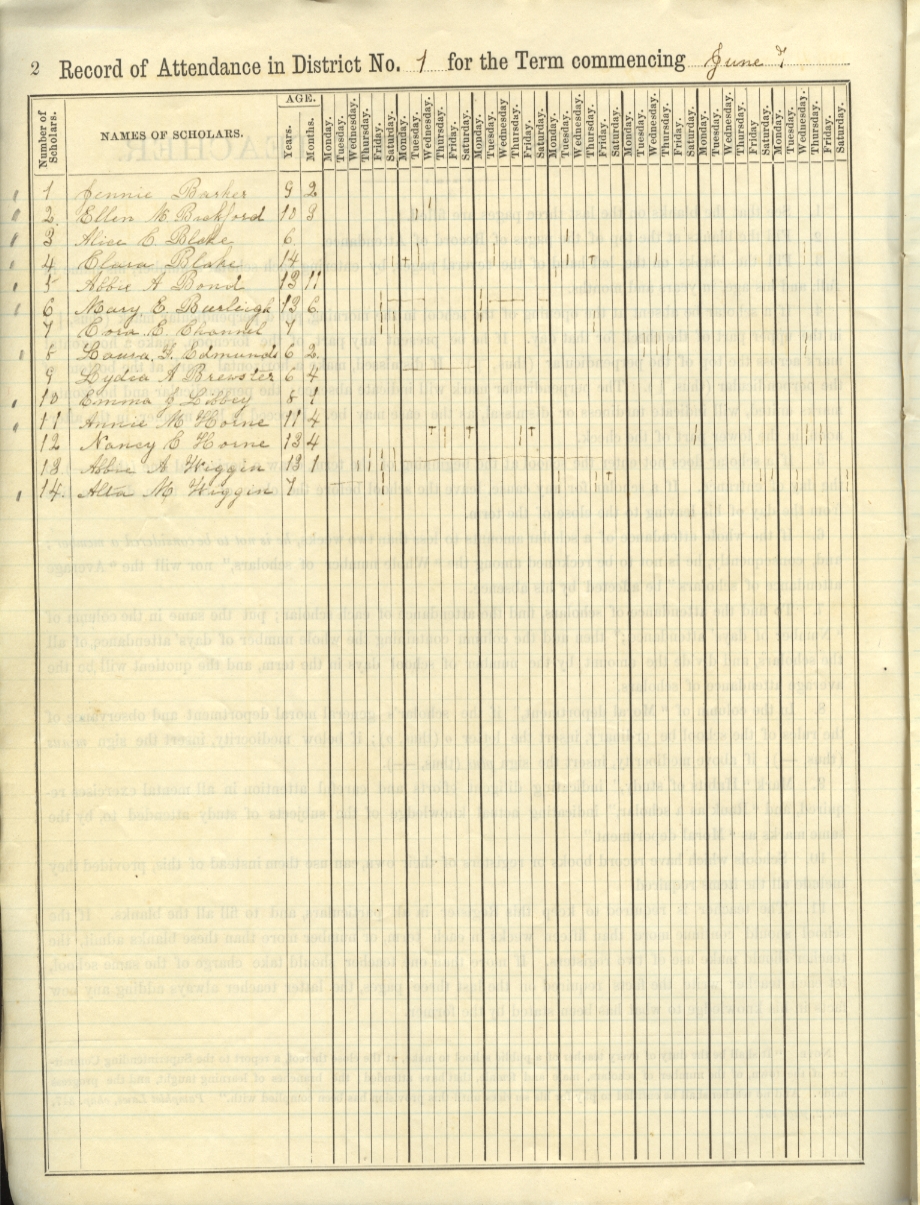 2 Record of Attendance in District No. 1 for the Term commencing June 7
Number of Scholars. NAMES OF SCHOLARS. AGE.
Years. Months. Monday. Tuesday. Wednesday. Thursday. Friday. Saturday. Monday. Tuesday. Wednesday. Thursday. Friday. Saturday. Monday. Tuesday. Wednesday Thursday. Friday. Saturday. Monday. Tuesday. Wednesday. Thursday. Friday. Saturday. Monday. Tuesday. Wednesday. Thursday. Friday. Saturday. Monday. Tuesday. Wednesday. Thursday. Friday. Saturday. Monday. Tuesday. Wednesday. Thursday. Friday. Saturday.
1 Jennie Barker 9 2
2. Ellen M. Bickford 10 3
3 Alice E. Blake 6
4 Clara Blake 14
5 Abbie A Bond 13 11
6 Mary E. Burleigh 13 6
7 Cora E. Channel 7
8 Laura. F. Edmunds 6 2.
9 Lydia A Brewster 6 4
10 Emma J Libbey 8 1
11 Annie M Horne 11 4
12 Nancy C Horne 13 4
13 Abbie A. Wiggin 13 1
14. Alta M Wiggin 7